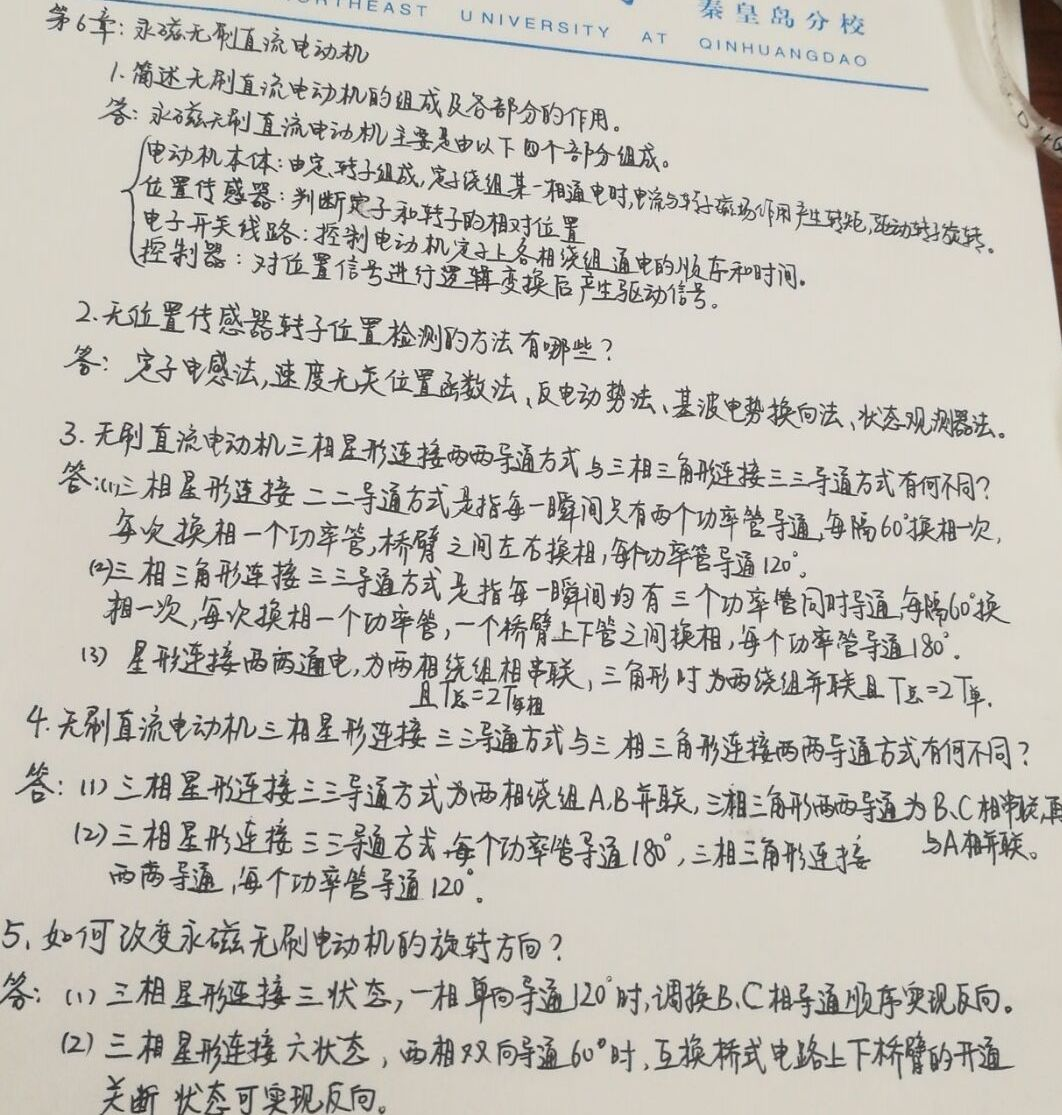 秦皇岛分校
NORTHEAST UNIVERSITY AT QINHUANGDAO
第6章:永磁无刷直流电动机
1.简述无刷直流电动机的组成及各部分的作用。
答:永磁无刷直流电动机主要是由以下四个部分组成。
电动机本体:由定、转子组成,定子绕组某一相通电时,电流与转子磁场作用产生转矩,驱动转子旋转。
位置传感器:判断定子和转子的相对位置
电子开关线路:控制电动机定子上各相绕组通电的顺序和时间。
控制器:对位置信号进行逻辑变换后产生驱动信号。
2.无位置传感器转子位置检测的方法有哪些?
答:定子电感法,速度无关位置函数法、反电动势法、基波电势换向法、状态观测器法。
3.无刷直流电动机三相星形连接两两导通方式与三相三角形连接三三导通方式有何不同?
答:(1)三相星形连接二二导通方式是指每一瞬间只有两个功率管导通,每隔60°换相一次,
每次换相一个功率管,桥臂之间左右换相,每个功率管导通120°。
(2)三相三角形连接三三导通方式是指每一瞬间均有三个功率管同时导通,每隔60°换
相一次,每次换相一个功率管,一个桥臂上下管之间换相,每个功率管导通180°.
(3) 星形连接两两通电,为两相绕组相串联,三角形时为两绕组并联且T总=2T单.
且T总=2T单相
4.无刷直流电动机三相星形连接三三导通方式与三相三角形连接两两导通方式有何不同?
答:(1)三相星形连接三三导通方式为两相绕组A,B并联,三相三角形两两导通为B、C相串联,再
与A相并联。
(2)三相星形连接三三导通方式,每个功率管导通180°,三相三角形连接
两两导通,每个功率管导通120°.
5.如何改变永磁无刷电动机的旋转方向?
答:(1)三相星形连接三状态,一相单向导通120°时,调换B、C相导通顺序实现反向。
(2)三相星形连接六状态,两相双向导通60°时,互换桥式电路上下桥臂的开通
关断状态可实现反向。